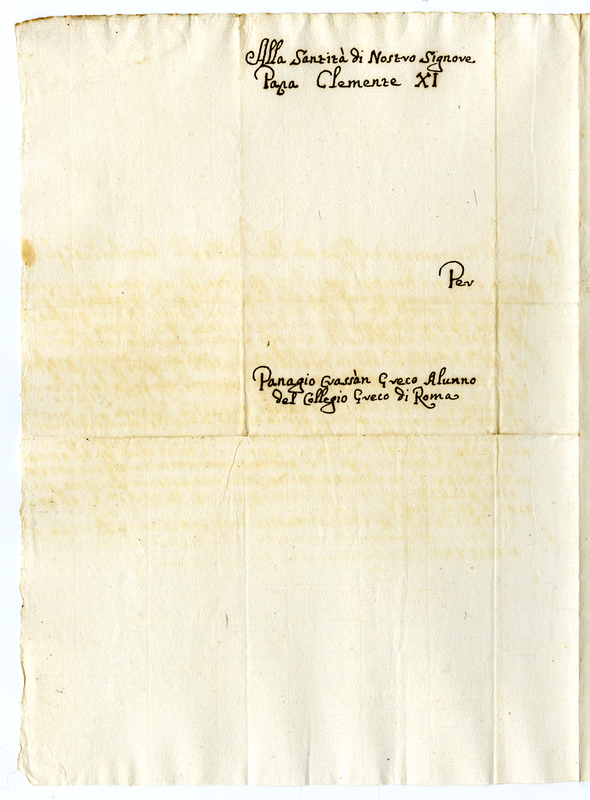 Alla Santità di Nostro Signore
Papa Clemente XI
Per
Panagio Grassàn Greco Alunno
del Collegio Greco di Roma